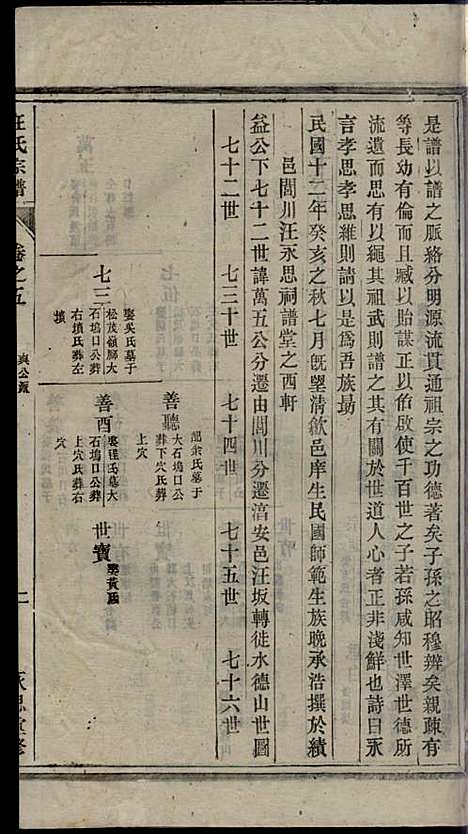 是譜以譜之脈絡分明源流貫通祖宗之功德著矣子孫之昭穆辨矣親疎有
等長幼有倫而且臧以貽謀正以佑啟使千百世之子若孫咸知世澤世德所
流遺而思有以繩其祖武則譜之其有關於世道人心者正非淺鮮也詩曰永
言孝思孝思維則請以是爲吾族勗
民國十二年癸亥之秋七月旣望清歙邑庠生民國師範生族晚承浩撰於績
邑閬川汪永思祠譜堂之西軒
益公下七十二世諱萬五公分遷由閬川分遷淯安邑汪坂轉徙水德山世圖
七十二世 七三十世 七十四世 七十五世 七十六世
善聽
配余氏墓于
大石塢口公
葬下穴氏葬
上穴
七三
娶吳氏墓于
松茂嶺腳大
石塢口公葬
右墳氏葬左
墳
善酉
娶程氏墓大
石塢口公葬
上穴氏葬右
穴
世寶
娶黃氏
汪氏宗譜
卷之五
二
永思堂修